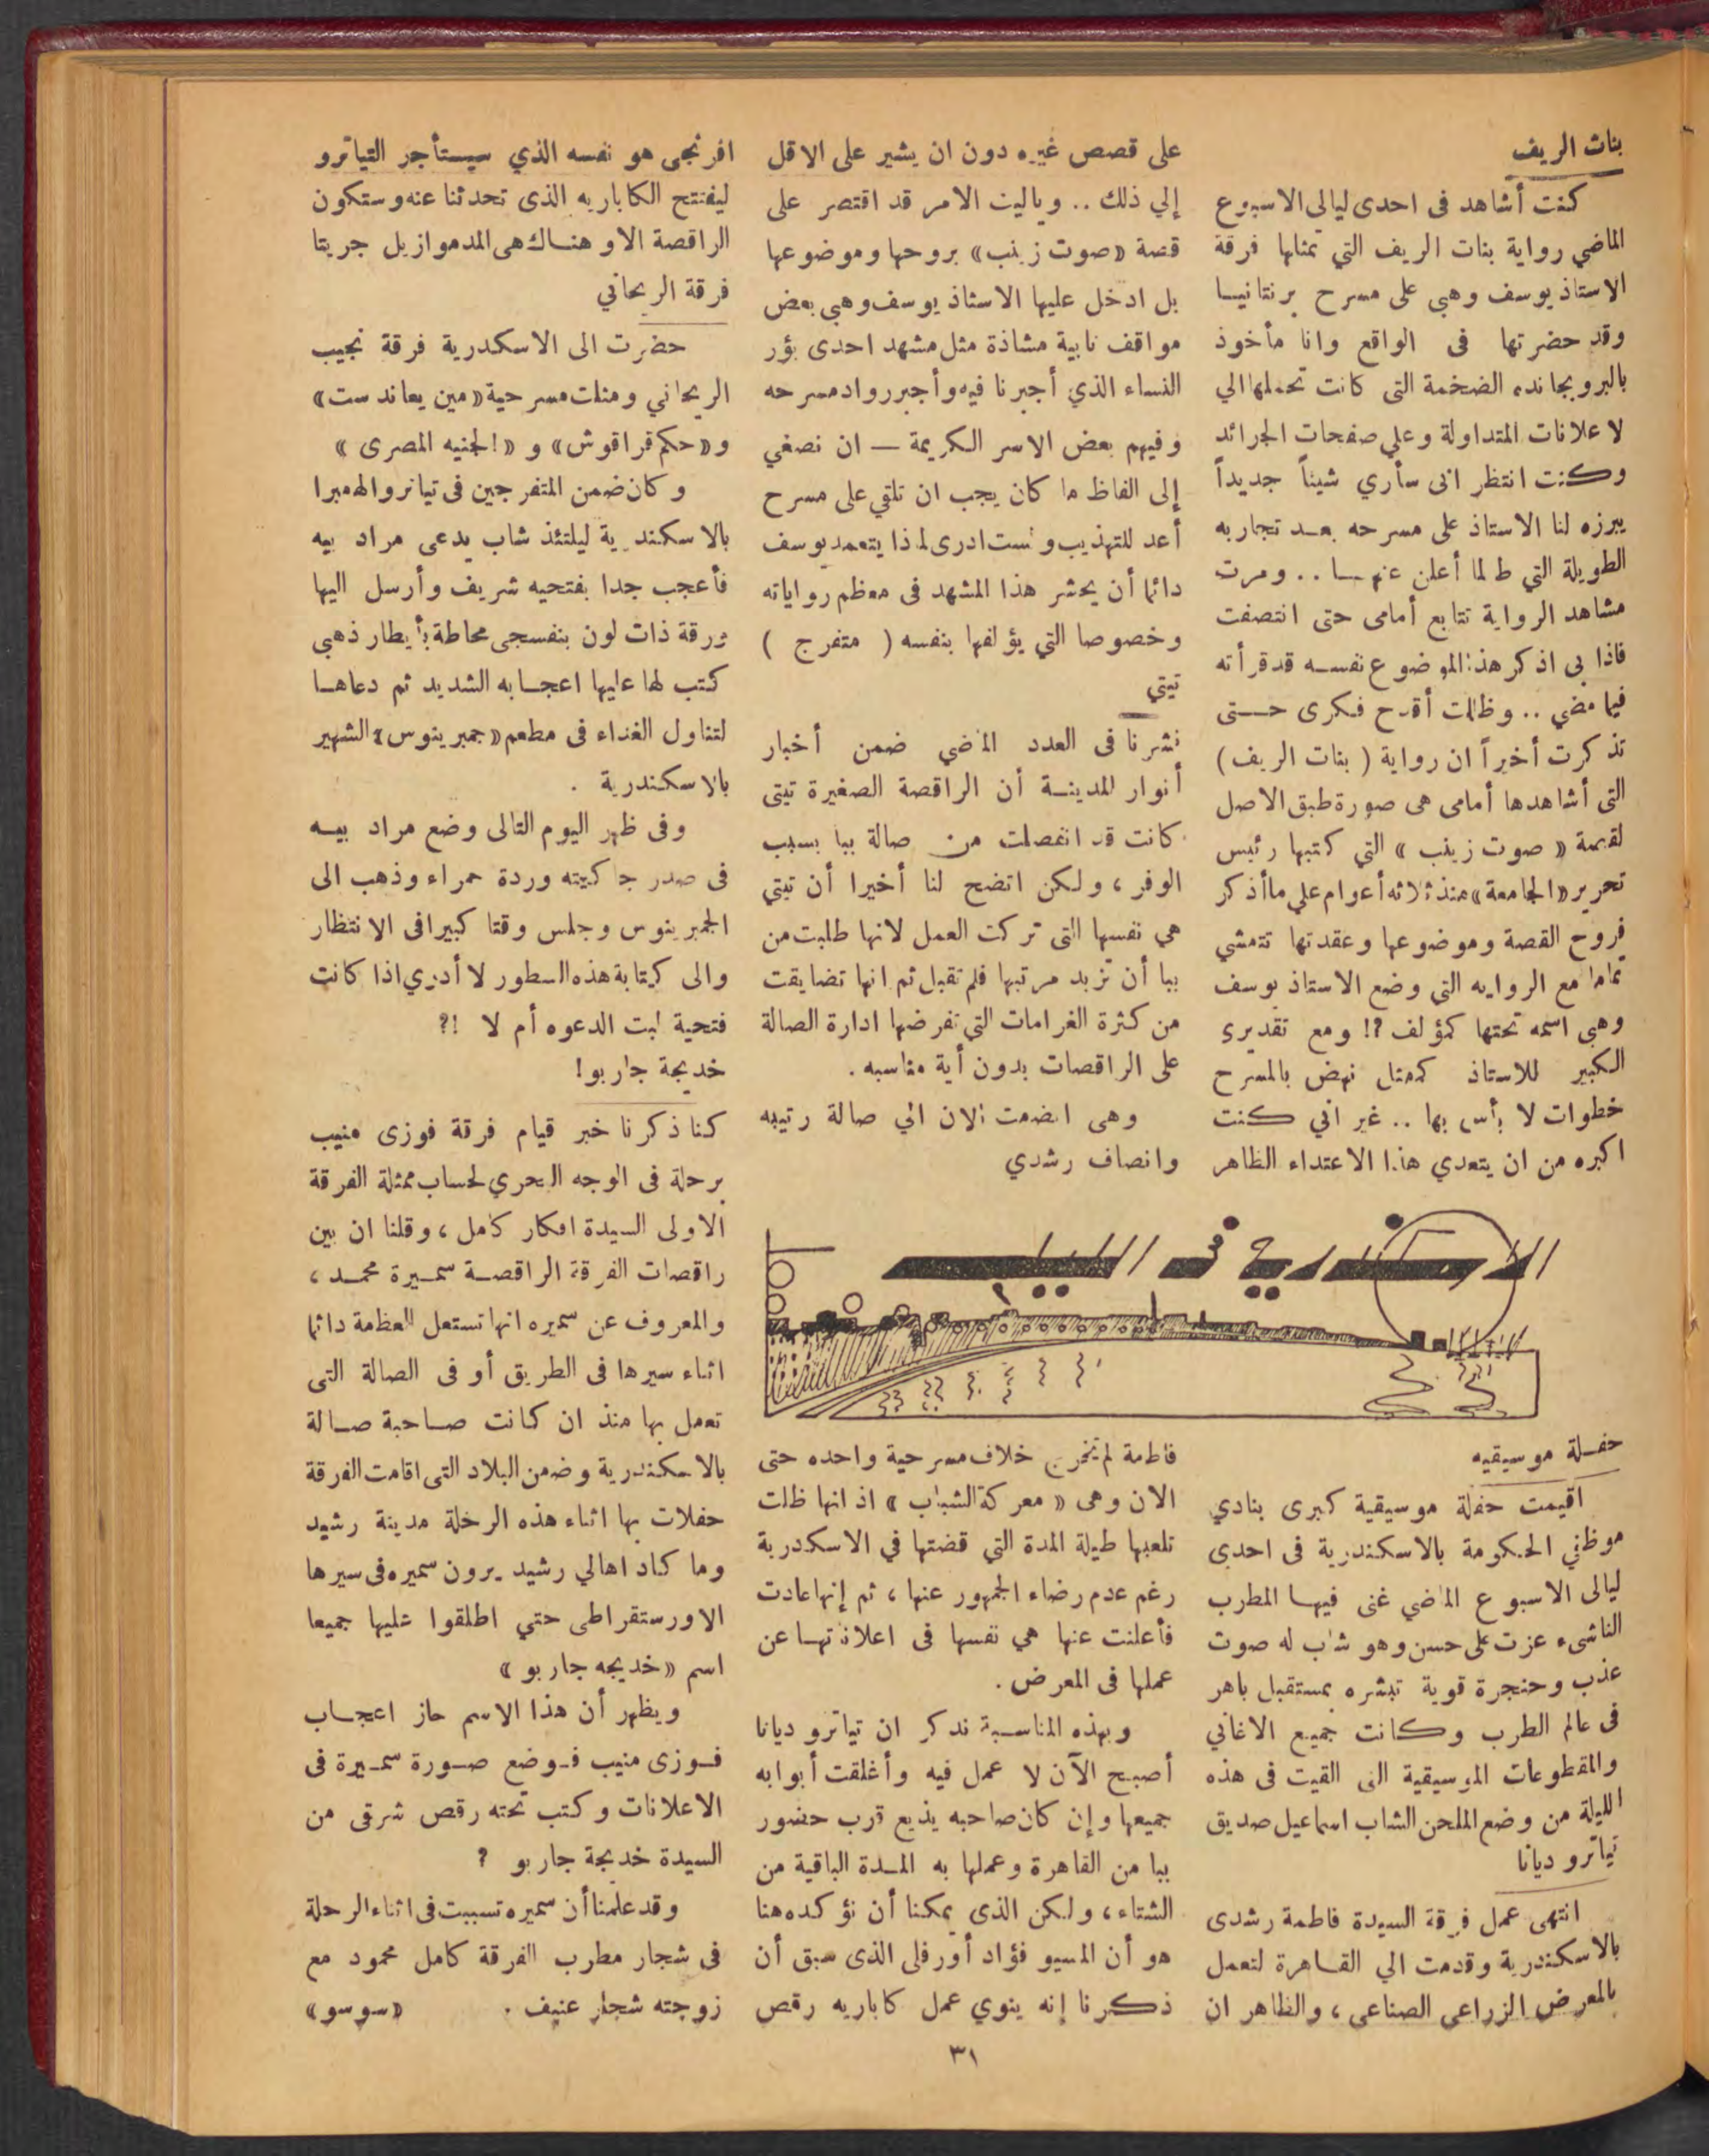 بنات الريف
كنت أشاهد فى احدى ليالى الاسبوع
الماضي رواية بنات الريف التي تمثلها فرقة
الاستاذ يوسف وهبى على مسرح برنتانيا
وقد حضرتها فى الواقع وانا مأخوذ
بالبروبجانده الضخمة التى كانت تحملها الي
لاعلانات المتداولة وعلي صفحات الجرائد
وكنت انتظر انى سأري شيئاً جديداً
يبرزه لنا الاستاذ على مسرحه بعد تجاربه
الطويلة التي طالما أعلن عنها .. ومرت
مشاهد الرواية تتابع أمامى حتى انتصفت
فاذا بى اذكر هذا الموضوع نفسه قد قرأته
فيما مضي .. وظللت أقدح فكرى حتى
تذكرت أخيراً ان رواية ( بنات الريف )
التى أشاهدها أمامى هى صورة طبق الاصل
لقصة « صوت زينب » التي كتبها رئيس
تحرير «الجامعة» منذ ثلاثه أعوام علي ما أذكر
فروح القصة وموضوعها وعقدتها تتمشي
تماما مع الروايه التي وضع الاستاذ يوسف
وهبى اسمه تحتها كمؤلف ؟! ومع تقديرى
الكبير للاستاذ كممثل نهض بالمسرح
خطوات لا بأس بها .. غير اني كنت
اكبره من ان يتعدي هذا الاعتداء الظاهر
على قصص غيره دون ان يشير على الاقل
إلي ذلك .. وياليت الامر قد اقتصر على
قصة «صوت زينب» بروحها وموضوعها
بل ادخل عليها الاستاذ يوسف وهبي بعض
مواقف نابية مشاذة مثل مشهد احدى بؤر
النساء الذي أجبرنا فيه وأجبر رواد مسرحه
وفيهم بعض الاسر الكريمة — ان نصغي
إلى الفاظ ما كان يجب ان تلقي على مسرح
أعد للتهذيب ولست ادرى لماذا يتعمد يوسف
دائما أن يحشر هذا المشهد فى معظم رواياته
وخصوصا التي يؤلفها بنفسه ( متفرج )
تيتي
نشرنا فى العدد الماضي ضمن أخبار
أنوار المدينة أن الراقصة الصغيرة تيتى
كانت قد انفصلت من صالة ببا بسبب
الوفر ، ولكن اتضح لنا أخيرا أن تيتي
هي نفسها التى تركت العمل لانها طلبت من
ببا أن تزيد مرتبها فلم تقبل ثم انها تضايقت
من كثرة الغرامات التي تفرضها ادارة الصالة
على الراقصات بدون أية مناسبه .
وهى انضمت الان الي صالة رتيبه
وانصاف رشدي
افرنجى هو نفسه الذي سيستأجر التياترو
ليفتتح الكاباريه الذى تحدثنا عنه وستكون
الراقصة الاو هناك هى المدموازيل جريتا
فرقة الريحاني
حضرت الى الاسكندرية فرقة نجيب
الريحاني ومثلت مسرحية «مين يعاند ست»
و«حكم قراقوش» و «الجنيه المصرى »
وكان ضمن المتفرجين فى تياترو الهمبرا
بالاسكندرية ليلتئذ شاب يدعى مراد بيه
فأعجب جدا بفتحيه شريف وأرسل اليها
ورقة ذات لون بنفسجى محاطة بأيطار ذهبي
كتب لها عليها اعجابه الشديد ثم دعاها
لتناول الغداء فى مطعم «جمبرينوس» الشهير
بالاسكندرية .
وفى ظهر اليوم التالى وضع مراد بيه
فى صدر جاكيته وردة حمراء وذهب الى
الجمبرينوس وجلس وقتا كبيرا فى الانتظار
والى كيتابة هذه السطور لا أدري اذا كانت
فتحية لبت الدعوه أم لا !؟
خديجة جاربو!
كنا ذكرنا خبر قيام فرقة فوزى منيب
برحلة فى الوجه البحري لحساب ممثلة الفرقة
الاولى السيدة افكار كامل ، وقلنا ان بين
راقصات الفرقة الراقصة سميرة محمد ،
والمعروف عن سميره انها تستعمل العظمة دائما
اثناء سيرها فى الطريق أو فى الصالة التى
تعمل بها منذ ان كانت صاحبة صالة
بالاسكندرية وضمن البلاد التى اقامت الفرقة
حفلات بها اثناء هذه الرحلة مدينة رشيد
وما كاد اهالي رشيد يرون سميره فى سيرها
الاورستقراطى حتي اطلقوا عليها جميعا
اسم «خديجه جاربو»
ويظهر أن هذا الاسم حاز اعجاب
فوزى منيب فوضع صورة سميرة فى
الاعلانات وكتب تحته رقص شرقى من
السيدة خديجة جاربو ؟
وقد علمنا أن سميره تسببت فى اثناء الرحلة
فى شجار مطرب الفرقة كامل محمود مع
زوجته شجار عنيف . «سوسو»
الاسكندرية فى الليل
حفلة موسيقيه
اقيمت حفلة موسيقية كبرى بنادي
موظفي الحكومة بالاسكندرية فى احدى
ليالى الاسبوع الماضي غنى فيها المطرب
الناشىء عزت على حسن وهو شاب له صوت
عذب وحنجرة قوية تبشره بمستقبل باهر
فى عالم الطرب وكانت جميع الاغاني
والمقطوعات الموسيقية التى القيت فى هذه
الليلة من وضع الملحن الشاب اسماعيل صديق
تياترو ديانا
انتهى عمل فرقة السيدة فاطمة رشدى
بالاسكندرية وقدمت الي القاهرة لتعمل
بالمعرض الزراعى الصناعى ، والظاهر ان
فاطمة لم تخرج خلاف مسرحية واحده حتى
الان وهى « معركة الشباب » اذ انها ظلت
تلعبها طيلة المدة التي قضتها في الاسكندرية
رغم عدم رضاء الجمهور عنها ، ثم إنها عادت
فأعلنت عنها هي نفسها فى اعلاناتها عن
عملها فى المعرض .
وبهذه المناسبة نذكر ان تياترو ديانا
أصبح الآن لا عمل فيه وأغلقت أبوابه
جميعها وإن كان صاحبه يذيع قرب حضور
ببا من القاهرة وعملها به المدة الباقية من
الشتاء ، ولكن الذى يمكنا أن نؤكده هنا
هو أن المسيو فؤاد أورفلى الذى سبق أن
ذكرنا إنه ينوي عمل كاباريه رقص
٣١